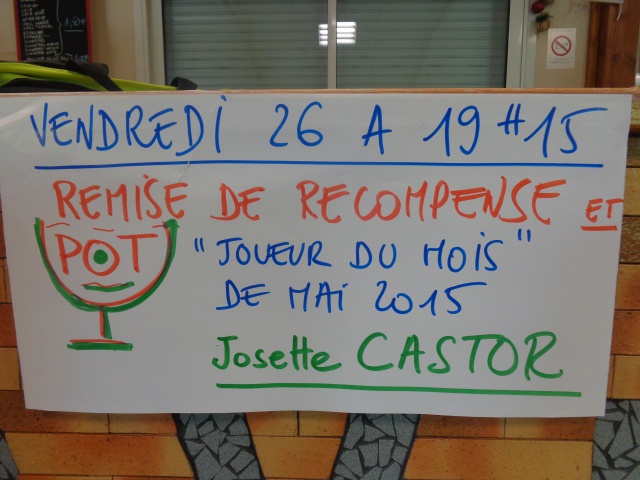 VENDREDI 26 A 19H15
REMISE DE RECOMPENSE ET
POT
"JOUEUR DU MOIS"
DE MAI 2015
Josette CASTOR